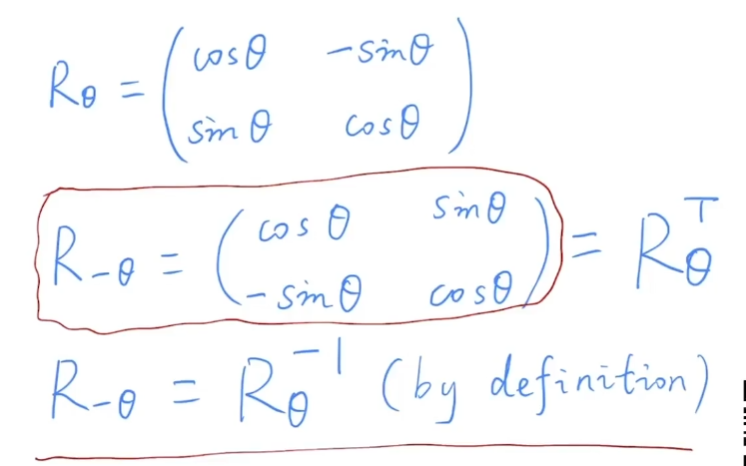 R_θ = ( cos θ  -sin θ
sin θ  cos θ )
R_{-θ} = ( cos θ  sin θ
- sin θ  cos θ ) = R_θ^T
R_{-θ} = R_θ^{-1} (by definition)